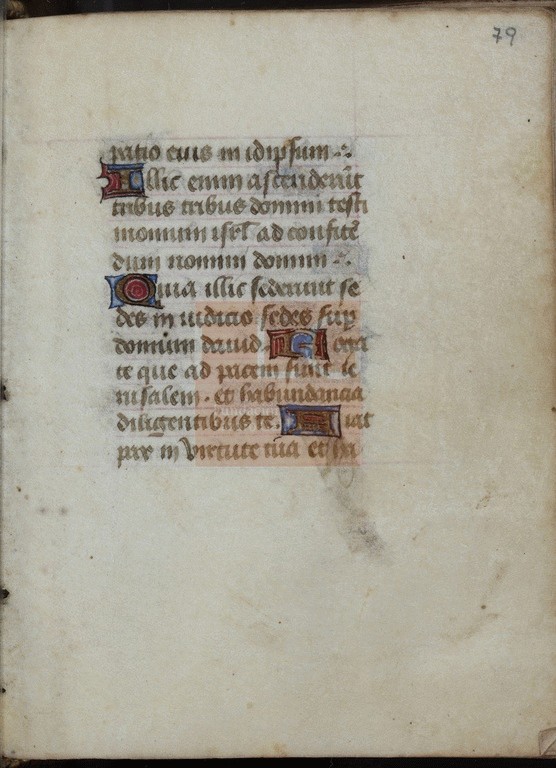 79
patio eius in idipsum
Illic enim ascenderūt
tribus tribus domini testi
monium isrl ad confitē
dum nomini domini
Quia illic sederunt se
des in iudicio sedes sup
domum dauid. Roga
te que ad pacem sunt ie
rusalem. et habundancia
diligentibus te. Fiat
pax in virtute tua et ha